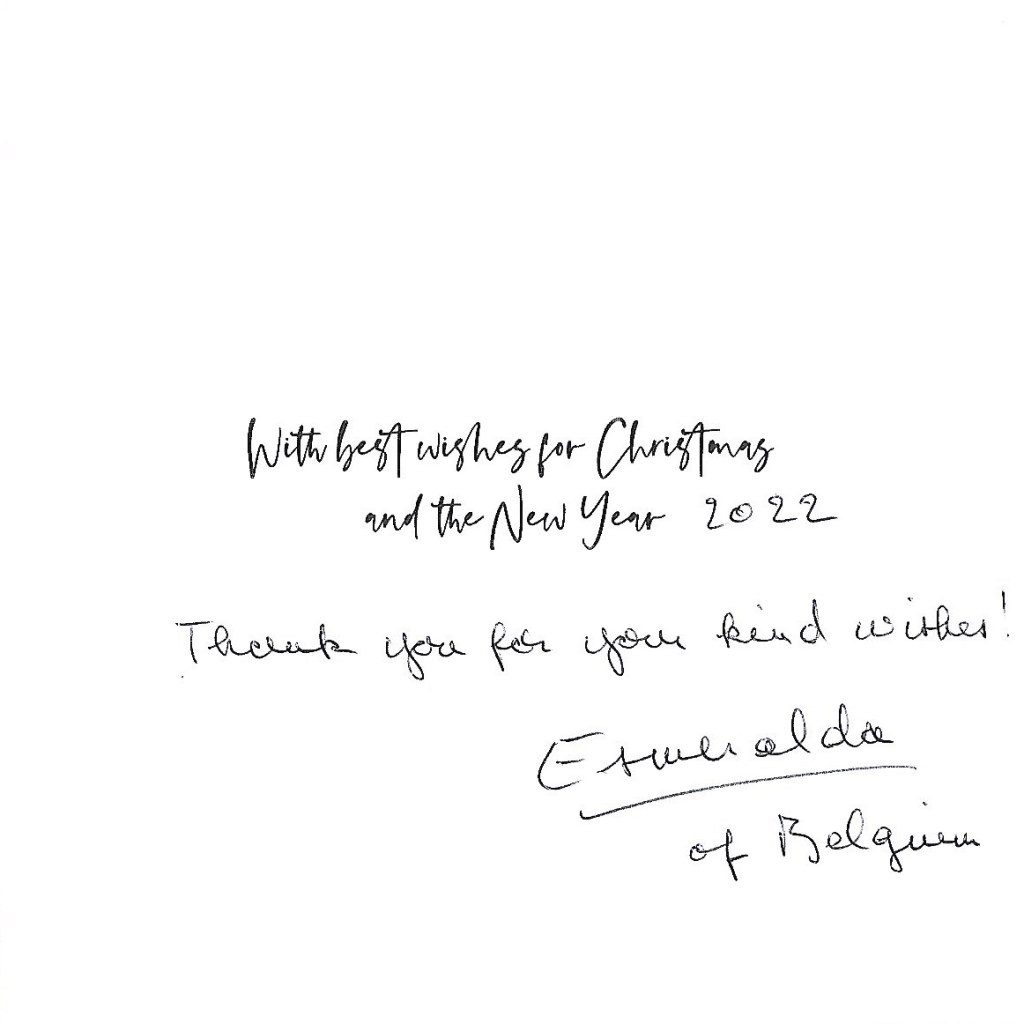 With best wishes for Christmas
and the New Year 2022
Thank you for your kind wishes!
Esmeralda
of Belgium